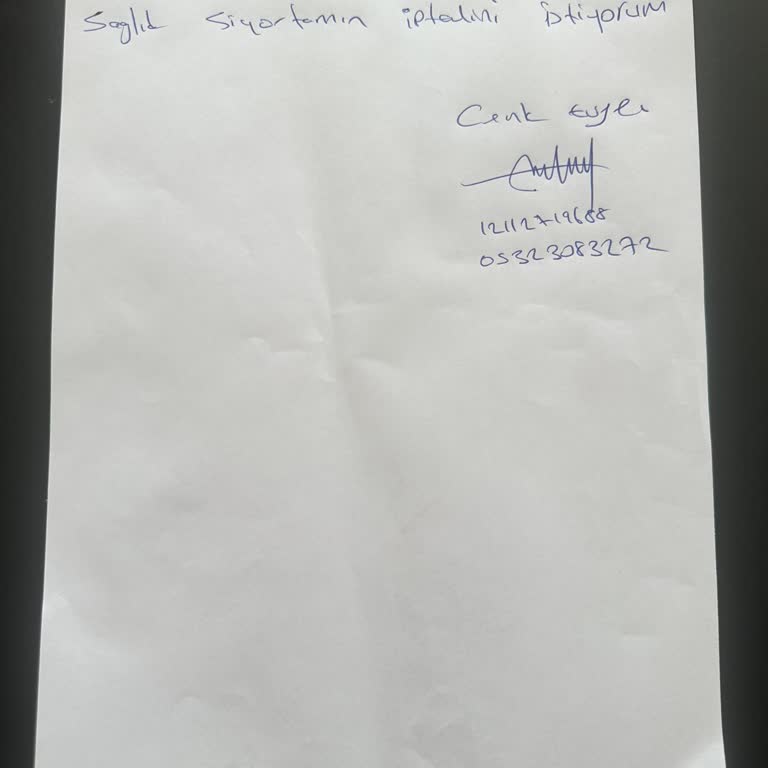 Sağlık Sigortamın iptalini istiyorum
Cenk
12112719688
05323083272